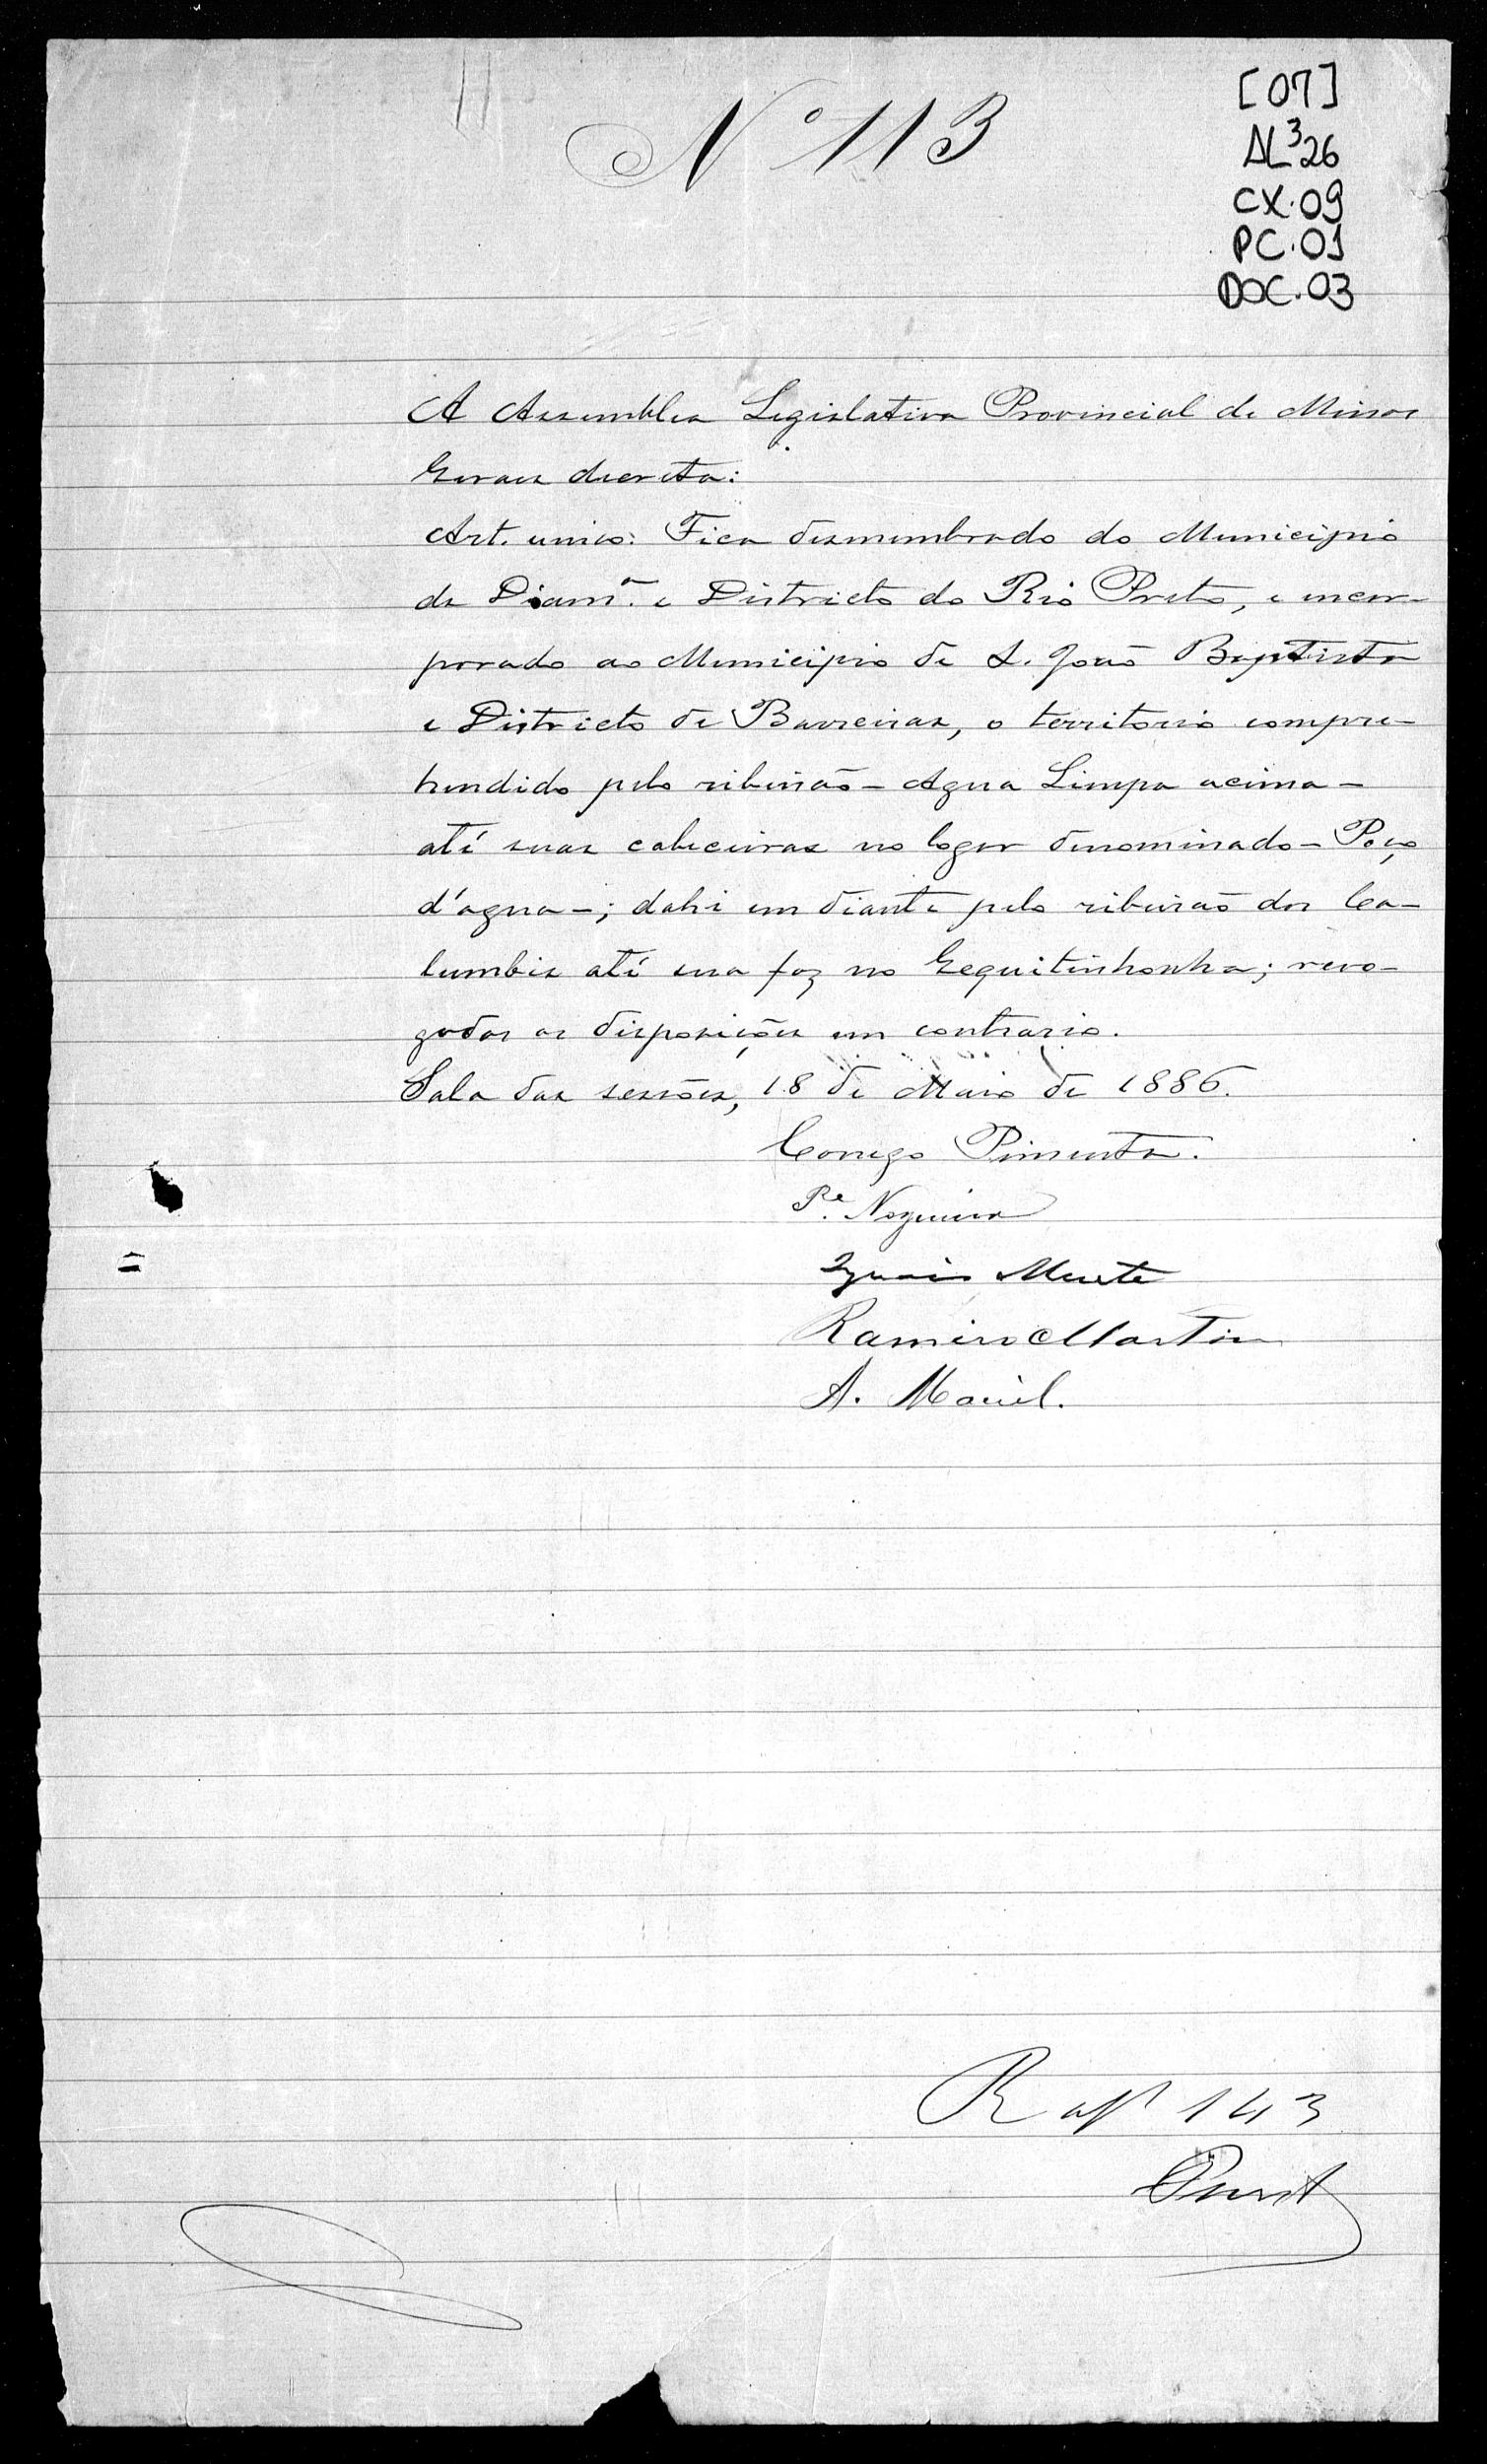 Nº 113
[07]
AL³26
CX.09
PC.01
DOC.03
A Assemblea Legislativa Provincial de Minas
Geraes decreta:
Art. unico: Fica desmembrado do Municipio
de Diamª. e Districto do Rio Preto, e incor-
porado ao Municipio de S. João Baptista
e Districto de Barreiras, o territorio compre-
hendido pelo ribeirão - Agua Limpa acima -
até suas cabeceiras no logar denominado - Poço
d'agua -; dahi em diante pelo ribeirão dos Ca-
lumbis até sua foz no Gequitinhonha; revo-
gadas as disposições em contrario.
Sala das sessões, 18 de Maio de 1886.
Conego Pimenta.
Pe. Nogueira
Ignacio Murta
Ramiro Martins
A. Maciel.
R 143